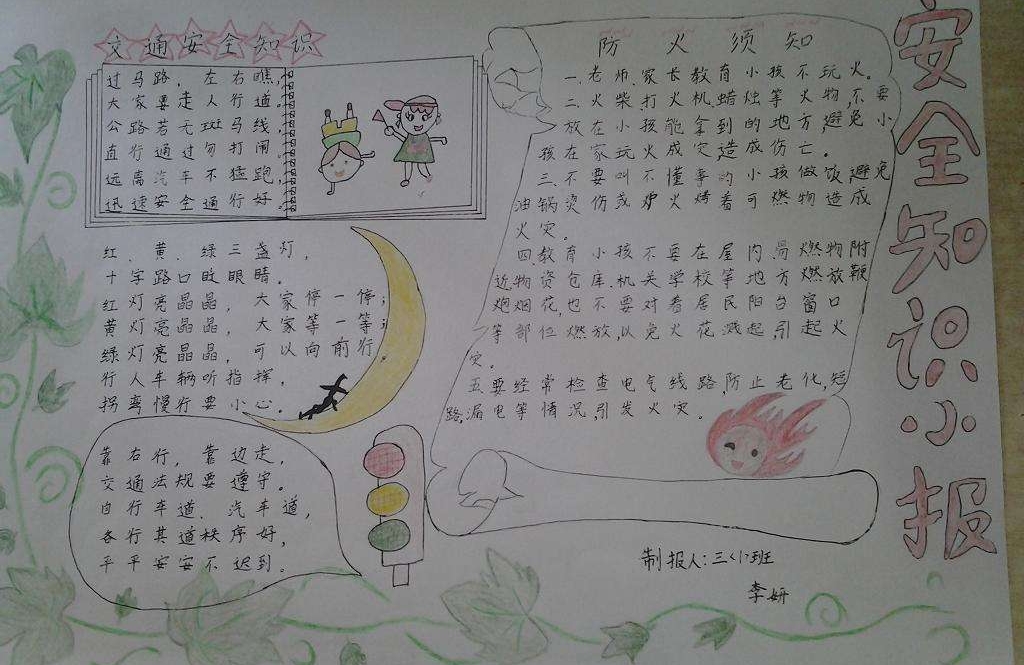 交通安全知识
过马路，左右瞧，
大家要走人行道。
公路若无斑马线，
直行通过勿打闹。
远离汽车不猛跑，
迅速安全通行好。
红、黄、绿三盏灯，
十字路口眨眼睛。
红灯亮晶晶，大家停一停；
黄灯亮晶晶，大家等一等；
绿灯亮晶晶，可以向前行，
行人车辆听指挥，
拐弯慢行要小心。
靠右行，靠边走，
交通法规要遵守。
自行车道、汽车道，
各行其道秩序好，
平平安安不迟到。
防火须知
一、老师、家长教育小孩不玩火。
二、火柴、打火机、蜡烛等火物，不要
放在小孩能拿到的地方，避免小
孩在家玩火成灾，造成伤亡。
三、不要叫不懂事的小孩做饭，避免
油锅烫伤或炉火烤着可燃物造成
火灾。
四教育小孩不要在屋内易燃物附
近、物资仓库、机关学校等地方燃放鞭
炮烟花，也不要对着居民阳台窗口
等部位燃放，以免火花溅起，引起火
灾。
五、要经常检查电气线路，防止老化，短
路，漏电等情况，引发火灾。
安全知识小报
制报人：三〈1〉班
李妍